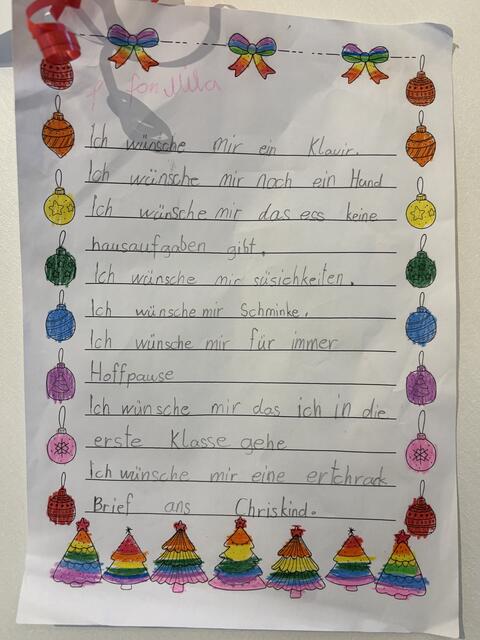 fon Mila
Ich wünsche mir ein Klavir.
Ich wünsche mir noch ein Hund
Ich wünsche mir das ess keine
hausaufgaben gibt.
Ich wünsche mir süsichkeiten.
Ich wünsche mir Schminke.
Ich wünsche mir für immer
Hoffpause
Ich wünsche mir das ich in die
erste Klasse gehe
Ich wünsche mir eine ertchrack
Brief ans Chriskind.